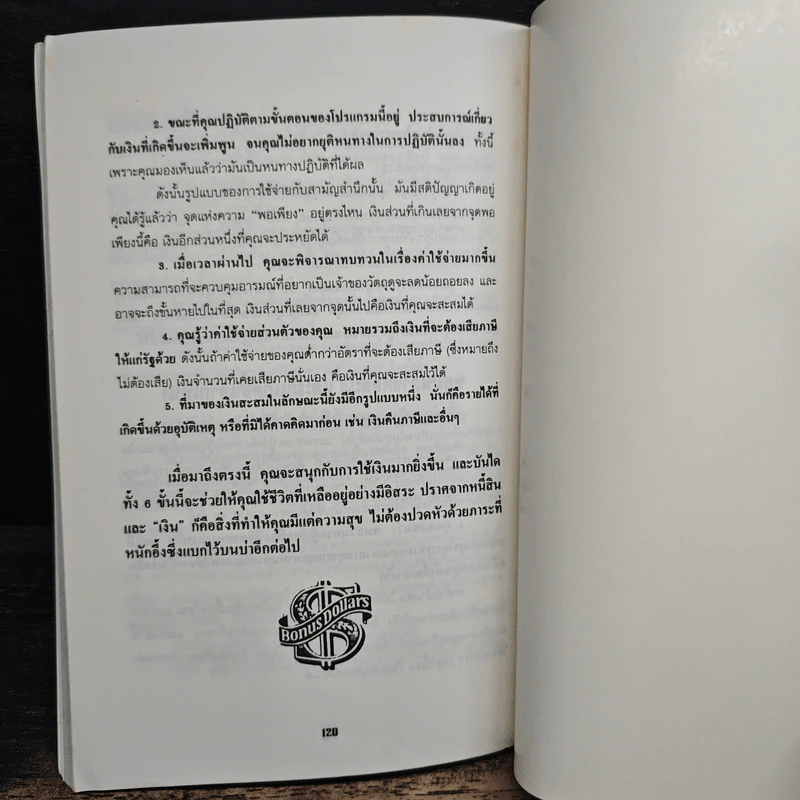 2. ขณะที่คุณปฏิบัติตามขั้นตอนของโปรแกรมนี้อยู่ ประสบการณ์เกี่ยว
กับเงินที่เกิดขึ้นจะเพิ่มพูน จนคุณไม่อยากยุติหนทางในการปฏิบัตินั้นลง ทั้งนี้
เพราะคุณมองเห็นแล้วว่ามันเป็นหนทางปฏิบัติที่ได้ผล
ดังนั้นรูปแบบของการใช้จ่ายกับสามัญสำนึกนั้น มันมีสติปัญญาเกิดอยู่
คุณได้รู้แล้วว่า จุดแห่งความ "พอเพียง" อยู่ตรงไหน เงินส่วนที่เกินเลยจากจุดพอ
เพียงนี้คือ เงินอีกส่วนหนึ่งที่คุณจะประหยัดได้
3. เมื่อเวลาผ่านไป คุณจะพิจารณาทบทวนในเรื่องค่าใช้จ่ายมากขึ้น
ความสามารถที่จะควบคุมอารมณ์ที่อยากเป็นเจ้าของวัตถุดูจะลดน้อยถอยลง และ
อาจจะถึงขั้นหายไปในที่สุด เงินส่วนที่เลยจากจุดนั้นไปคือเงินที่คุณจะสะสมได้
4. คุณรู้ว่าค่าใช้จ่ายส่วนตัวของคุณ หมายรวมถึงเงินที่จะต้องเสียภาษี
ให้แก่รัฐด้วย ดังนั้นถ้าค่าใช้จ่ายของคุณต่ำกว่าอัตราที่จะต้องเสียภาษี (ซึ่งหมายถึง
ไม่ต้องเสีย) เงินจำนวนที่เคยเสียภาษีนั่นเอง คือเงินที่คุณจะสะสมไว้ได้
5. ที่มาของเงินสะสมในลักษณะนี้ยังมีอีกรูปแบบหนึ่ง นั่นก็คือรายได้ที่
เกิดขึ้นด้วยอุบัติเหตุ หรือที่มิได้คาดคิดมาก่อน เช่น เงินคืนภาษีและอื่นๆ
เมื่อมาถึงตรงนี้ คุณจะสนุกกับการใช้เงินมากยิ่งขึ้น และบันได
ทั้ง 6 ขั้นนี้จะช่วยให้คุณใช้ชีวิตที่เหลืออยู่อย่างมีอิสระ ปราศจากหนี้สิน
และ "เงิน" ก็คือสิ่งที่ทำให้คุณมีแต่ความสุข ไม่ต้องปวดหัวด้วยภาระที่
หนักอึ้งซึ่งแบกไว้บนบ่าอีกต่อไป
Bonus Dollars
120